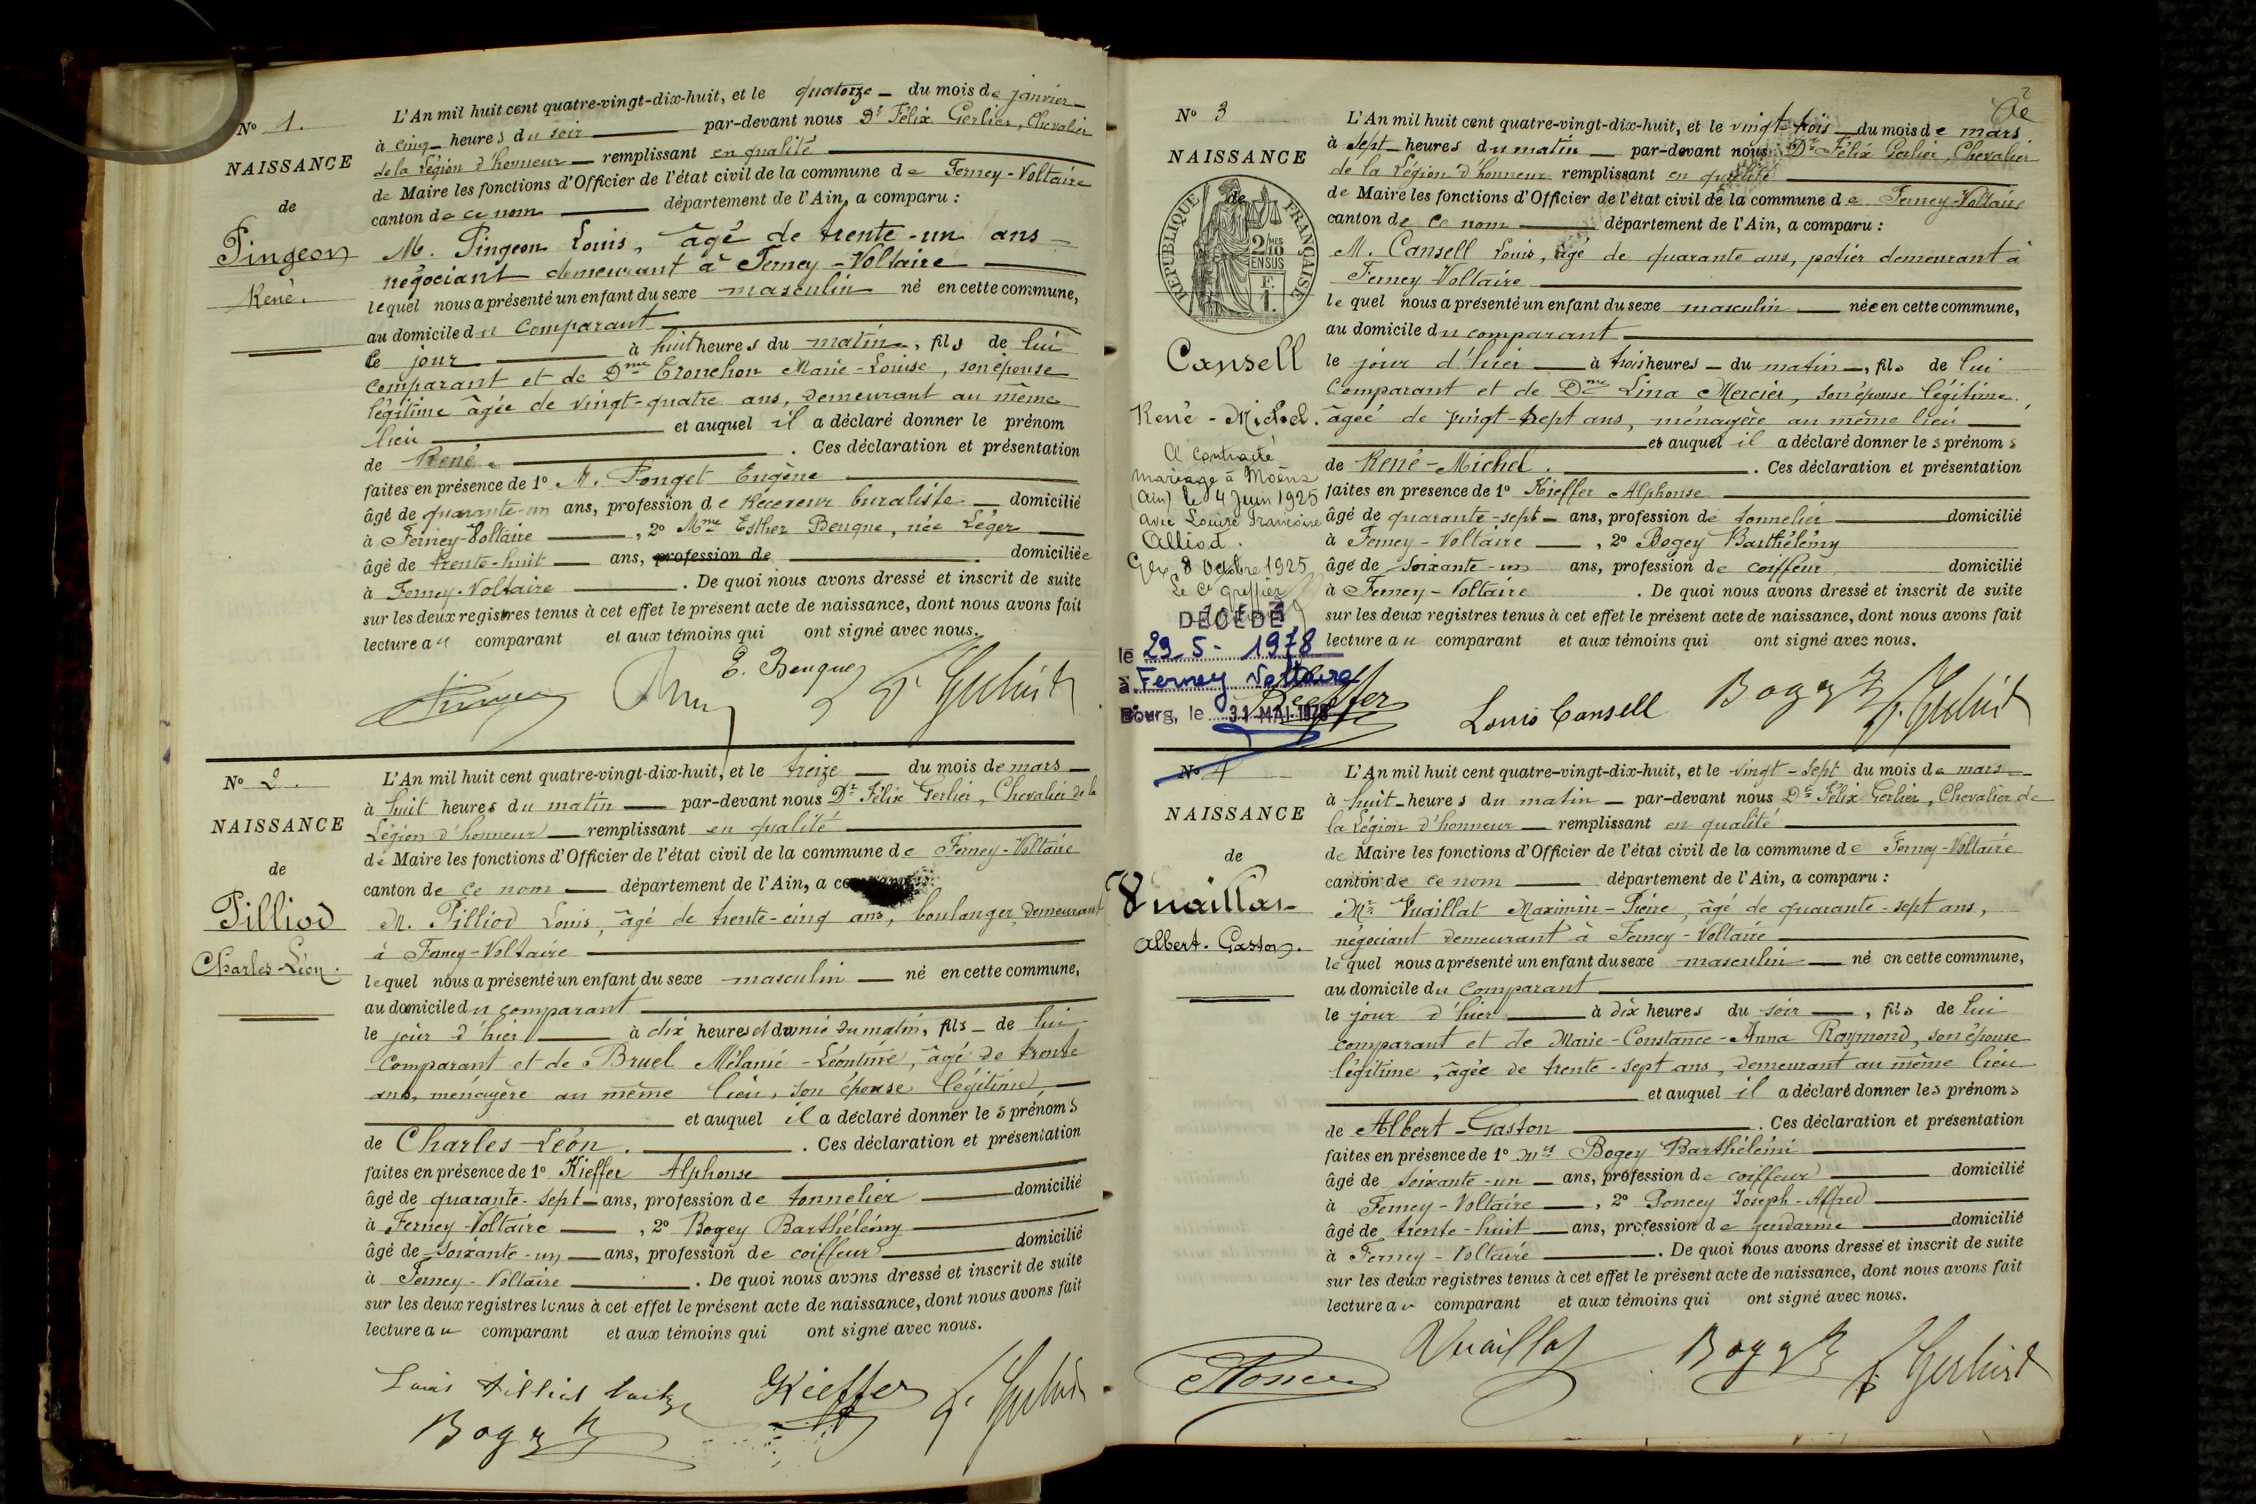 No 1.
NAISSANCE
de
Pingeon
René.
L'An mil huit cent quatre-vingt-dix-huit, et le quatorze du mois de janvier
à cinq heures du soir par-devant nous Dr Félix Gerlier, Chevalier
de la Légion d'honneur remplissant en qualité
de Maire les fonctions d'Officier de l'état civil de la commune de Ferney-Voltaire
canton de ce nom département de l'Ain, a comparu :
M. Pingeon Louis, âgé de trente-un ans
négociant demeurant à Ferney-Voltaire
lequel nous a présenté un enfant du sexe masculin né en cette commune,
au domicile du comparant
le jour à huit heures du matin, fils de lui
comparant et de Dme Tronchon Marie-Louise, son épouse
légitime âgée de vingt-quatre ans, demeurant au même
lieu et auquel il a déclaré donner le prénom
de René. Ces déclaration et présentation
faites en présence de 1o M. Fonget Eugène
âgé de quarante-un ans, profession de Receveur buraliste domicilié
à Ferney-Voltaire, 2o Mme Esther Beugne, née Léger
âgé de trente-huit ans, profession de domiciliée
à Ferney-Voltaire. De quoi nous avons dressé et inscrit de suite
sur les deux registres tenus à cet effet le présent acte de naissance, dont nous avons fait
lecture au comparant et aux témoins qui ont signé avec nous.
E. Beugne
F. Gerlier
No 2.
NAISSANCE
de
Pilliod
Charles-Léon.
L'An mil huit cent quatre-vingt-dix-huit, et le treize du mois de mars
à huit heures du matin par-devant nous Dr Félix Gerlier, Chevalier de la
Légion d'honneur remplissant en qualité
de Maire les fonctions d'Officier de l'état civil de la commune de Ferney-Voltaire
canton de ce nom département de l'Ain, a
M. Pilliod Louis, âgé de trente-cinq ans, boulanger demeurant
à Ferney-Voltaire
lequel nous a présenté un enfant du sexe masculin né en cette commune,
au domicile du comparant
le jour d'hier à dix heures et demie du matin, fils de lui
comparant et de Bruel Mélanie-Léontine, âgé de trente
ans, ménagère au même lieu, son épouse légitime
et auquel il a déclaré donner les prénoms
de Charles-Léon. Ces déclaration et présentation
faites en présence de 1o Kieffer Alphonse
âgé de quarante-sept ans, profession de tonnelier domicilié
à Ferney-Voltaire, 2o Bogey Barthélémy
âgé de soixante-un ans, profession de coiffeur domicilié
à Ferney-Voltaire. De quoi nous avons dressé et inscrit de suite
sur les deux registres tenus à cet effet le présent acte de naissance, dont nous avons fait
lecture au comparant et aux témoins qui ont signé avec nous.
Louis Pilliod Kieffer F. Gerlier
Bogey
2
No 3
NAISSANCE
de
RÉPUBLIQUE FRANÇAISE
2/10 MES
EN SUS
F.
1.
Cansell
René-Michel.
A contracté
mariage à Moëns
(Ain) le 4 Juin 1925
avec Louise Françoise
Alliod.
Gex, 8 Octobre 1925
Le Cs greffier
DÉCÉDÉ
le 29-5-1978
à Ferney Voltaire
Bourg, le 31 MAI 1978
L'An mil huit cent quatre-vingt-dix-huit, et le vingt-trois du mois de mars
à sept heures du matin par-devant nous Dr Félix Gerlier, Chevalier
de la Légion d'honneur remplissant en qualité
de Maire les fonctions d'Officier de l'état civil de la commune de Ferney-Voltaire
canton de ce nom département de l'Ain, a comparu :
M. Cansell Louis, âgé de quarante ans, potier demeurant à
Ferney-Voltaire
lequel nous a présenté un enfant du sexe masculin née en cette commune,
au domicile du comparant
le jour d'hier à trois heures du matin, fils de lui
comparant et de Dme Lina Mercier, son épouse légitime
âgée de vingt-sept ans, ménagère au même lieu
et auquel il a déclaré donner les prénoms
de René-Michel. Ces déclaration et présentation
faites en présence de 1o Kieffer Alphonse
âgé de quarante-sept ans, profession de tonnelier domicilié
à Ferney-Voltaire, 2o Bogey Barthélémy
âgé de soixante-un ans, profession de coiffeur domicilié
à Ferney-Voltaire. De quoi nous avons dressé et inscrit de suite
sur les deux registres tenus à cet effet le présent acte de naissance, dont nous avons fait
lecture au comparant et aux témoins qui ont signé avec nous.
Kieffer Louis Cansell Bogey F. Gerlier
No 4
NAISSANCE
de
Vuaillat
Albert-Gaston.
L'An mil huit cent quatre-vingt-dix-huit, et le vingt-sept du mois de mars
à huit heures du matin par-devant nous Dr Félix Gerlier, Chevalier de
la Légion d'honneur remplissant en qualité
de Maire les fonctions d'Officier de l'état civil de la commune de Ferney-Voltaire
canton de ce nom département de l'Ain, a comparu :
Mr Vuaillat Maximin-Pierre, âgé de quarante-sept ans,
négociant demeurant à Ferney-Voltaire
lequel nous a présenté un enfant du sexe masculin né en cette commune,
au domicile du comparant
le jour d'hier à dix heures du soir, fils de lui
comparant et de Marie-Constance-Anna Raymond, son épouse
légitime, âgée de trente-sept ans, demeurant au même lieu
et auquel il a déclaré donner les prénoms
de Albert-Gaston. Ces déclaration et présentation
faites en présence de 1o Mrs Bogey Barthélémi
âgé de soixante-un ans, profession de coiffeur domicilié
à Ferney-Voltaire, 2o Poncey Joseph-Alfred
âgé de trente-huit ans, profession de gendarme domicilié
à Ferney-Voltaire. De quoi nous avons dressé et inscrit de suite
sur les deux registres tenus à cet effet le présent acte de naissance, dont nous avons fait
lecture au comparant et aux témoins qui ont signé avec nous.
Poncey Vuaillat Bogey F. Gerlier